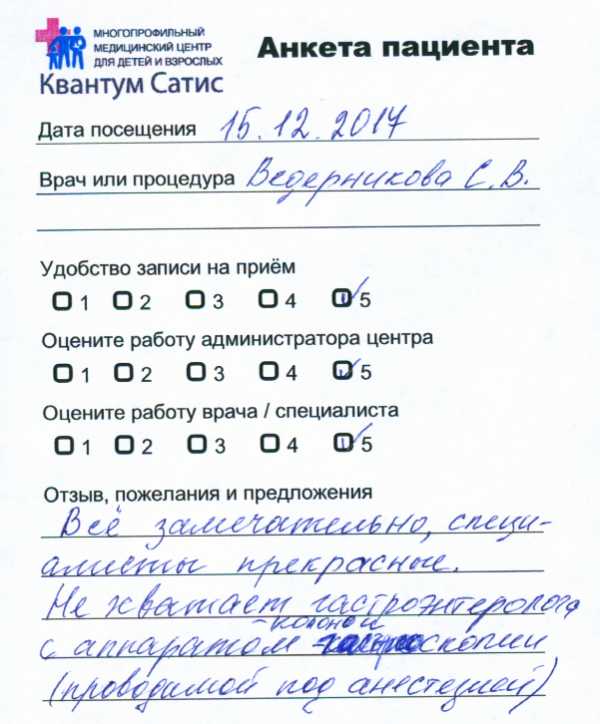 МНОГОПРОФИЛЬНЫЙ
МЕДИЦИНСКИЙ ЦЕНТР
ДЛЯ ДЕТЕЙ И ВЗРОСЛЫХ
Квантум Сатис
Анкета пациента
Дата посещения 15.12.2017
Врач или процедура Ведерникова С.В.
Удобство записи на приём
1 2 3 4 5
Оцените работу администратора центра
1 2 3 4 5
Оцените работу врача / специалиста
1 2 3 4 5
Отзыв, пожелания и предложения
Всё замечательно, специ-
алисты прекрасные.
Не хватает гастроэнтеролога
с аппаратом колоно скопии
(проводимой под анестезией)